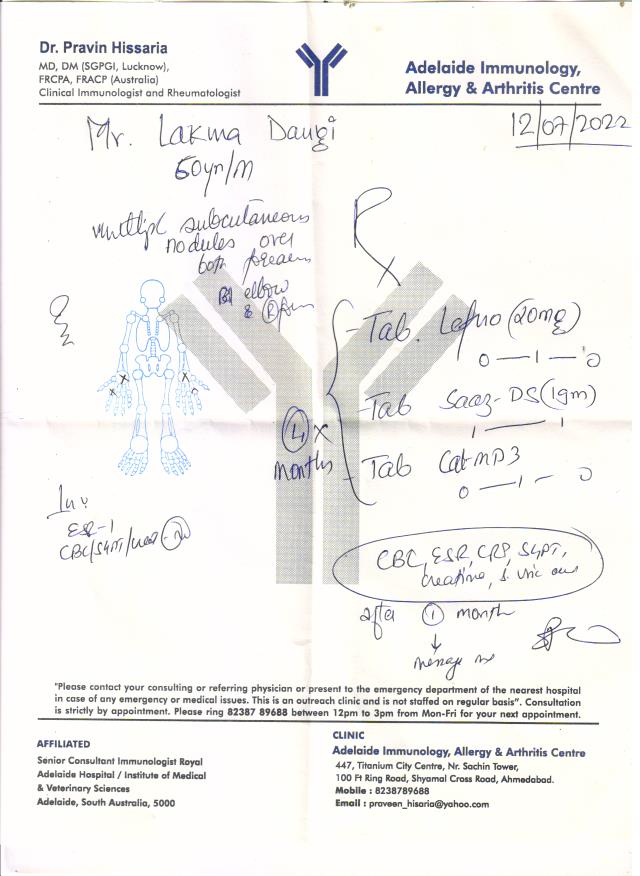 Dr. Pravin Hissaria
MD, DM (SGPGI, Lucknow),
FRCPA, FRACP (Australia)
Clinical Immunologist and Rheumatologist
Adelaide Immunology,
Allergy & Arthritis Centre
12/07/2022
Mr. Lakma Daugi
60yr/M
multipl subcutaneous
nodules over
both
elbow
&
Rx
- Tab. Lefno (20mg)
0 — 1 — 0
- Tab Saaz-DS (1gm)
1 — 1
- Tab Cal-MD3
0 — 1 — 0
4 x
months
Inv
ESR-1
CBC/SGPT/
CBC, ESR, CRP, SGPT,
creatine, S. uric
after 1 month
↓
message me
"Please contact your consulting or referring physician or present to the emergency department of the nearest hospital
in case of any emergency or medical issues. This is an outreach clinic and is not staffed on regular basis". Consultation
is strictly by appointment. Please ring 82387 89688 between 12pm to 3pm from Mon-Fri for your next appointment.
AFFILIATED
Senior Consultant Immunologist Royal
Adelaide Hospital / Institute of Medical
& Veterinary Sciences
Adelaide, South Australia, 5000
CLINIC
Adelaide Immunology, Allergy & Arthritis Centre
447, Titanium City Centre, Nr. Sachin Tower,
100 Ft Ring Road, Shyamal Cross Road, Ahmedabad.
Mobile : 8238789688
Email : praveen_hisaria@yahoo.com